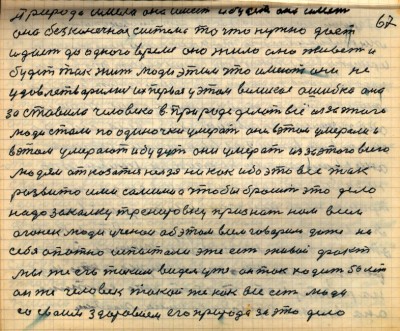 природа имела она имеет и будет она имет 67
она бесконечная система то что нужно дает
и дает до одного время оно жило оно живет и
будит так жит люди этим что имеют они не
удовлетварились и первая у этом великая ошибка она
заставила человека в природе делат всё из за этого
люди стали по одиночки умерат они в этом умерали и
в этом умерают и будут они умерат из за этого всего
людям отказатся нелзя ни как ибо это все так
развито ими самими а чтобы бросит это дело
надо закалку тренировку признат нам всем
люди ученаи об этом всем говорим даже на
себя опятно испытали эже есть живой факт
мы же его таким видем уже он так ходит болит
он же человек такой же как все есть люди
со своим здоровием его природа за это дело